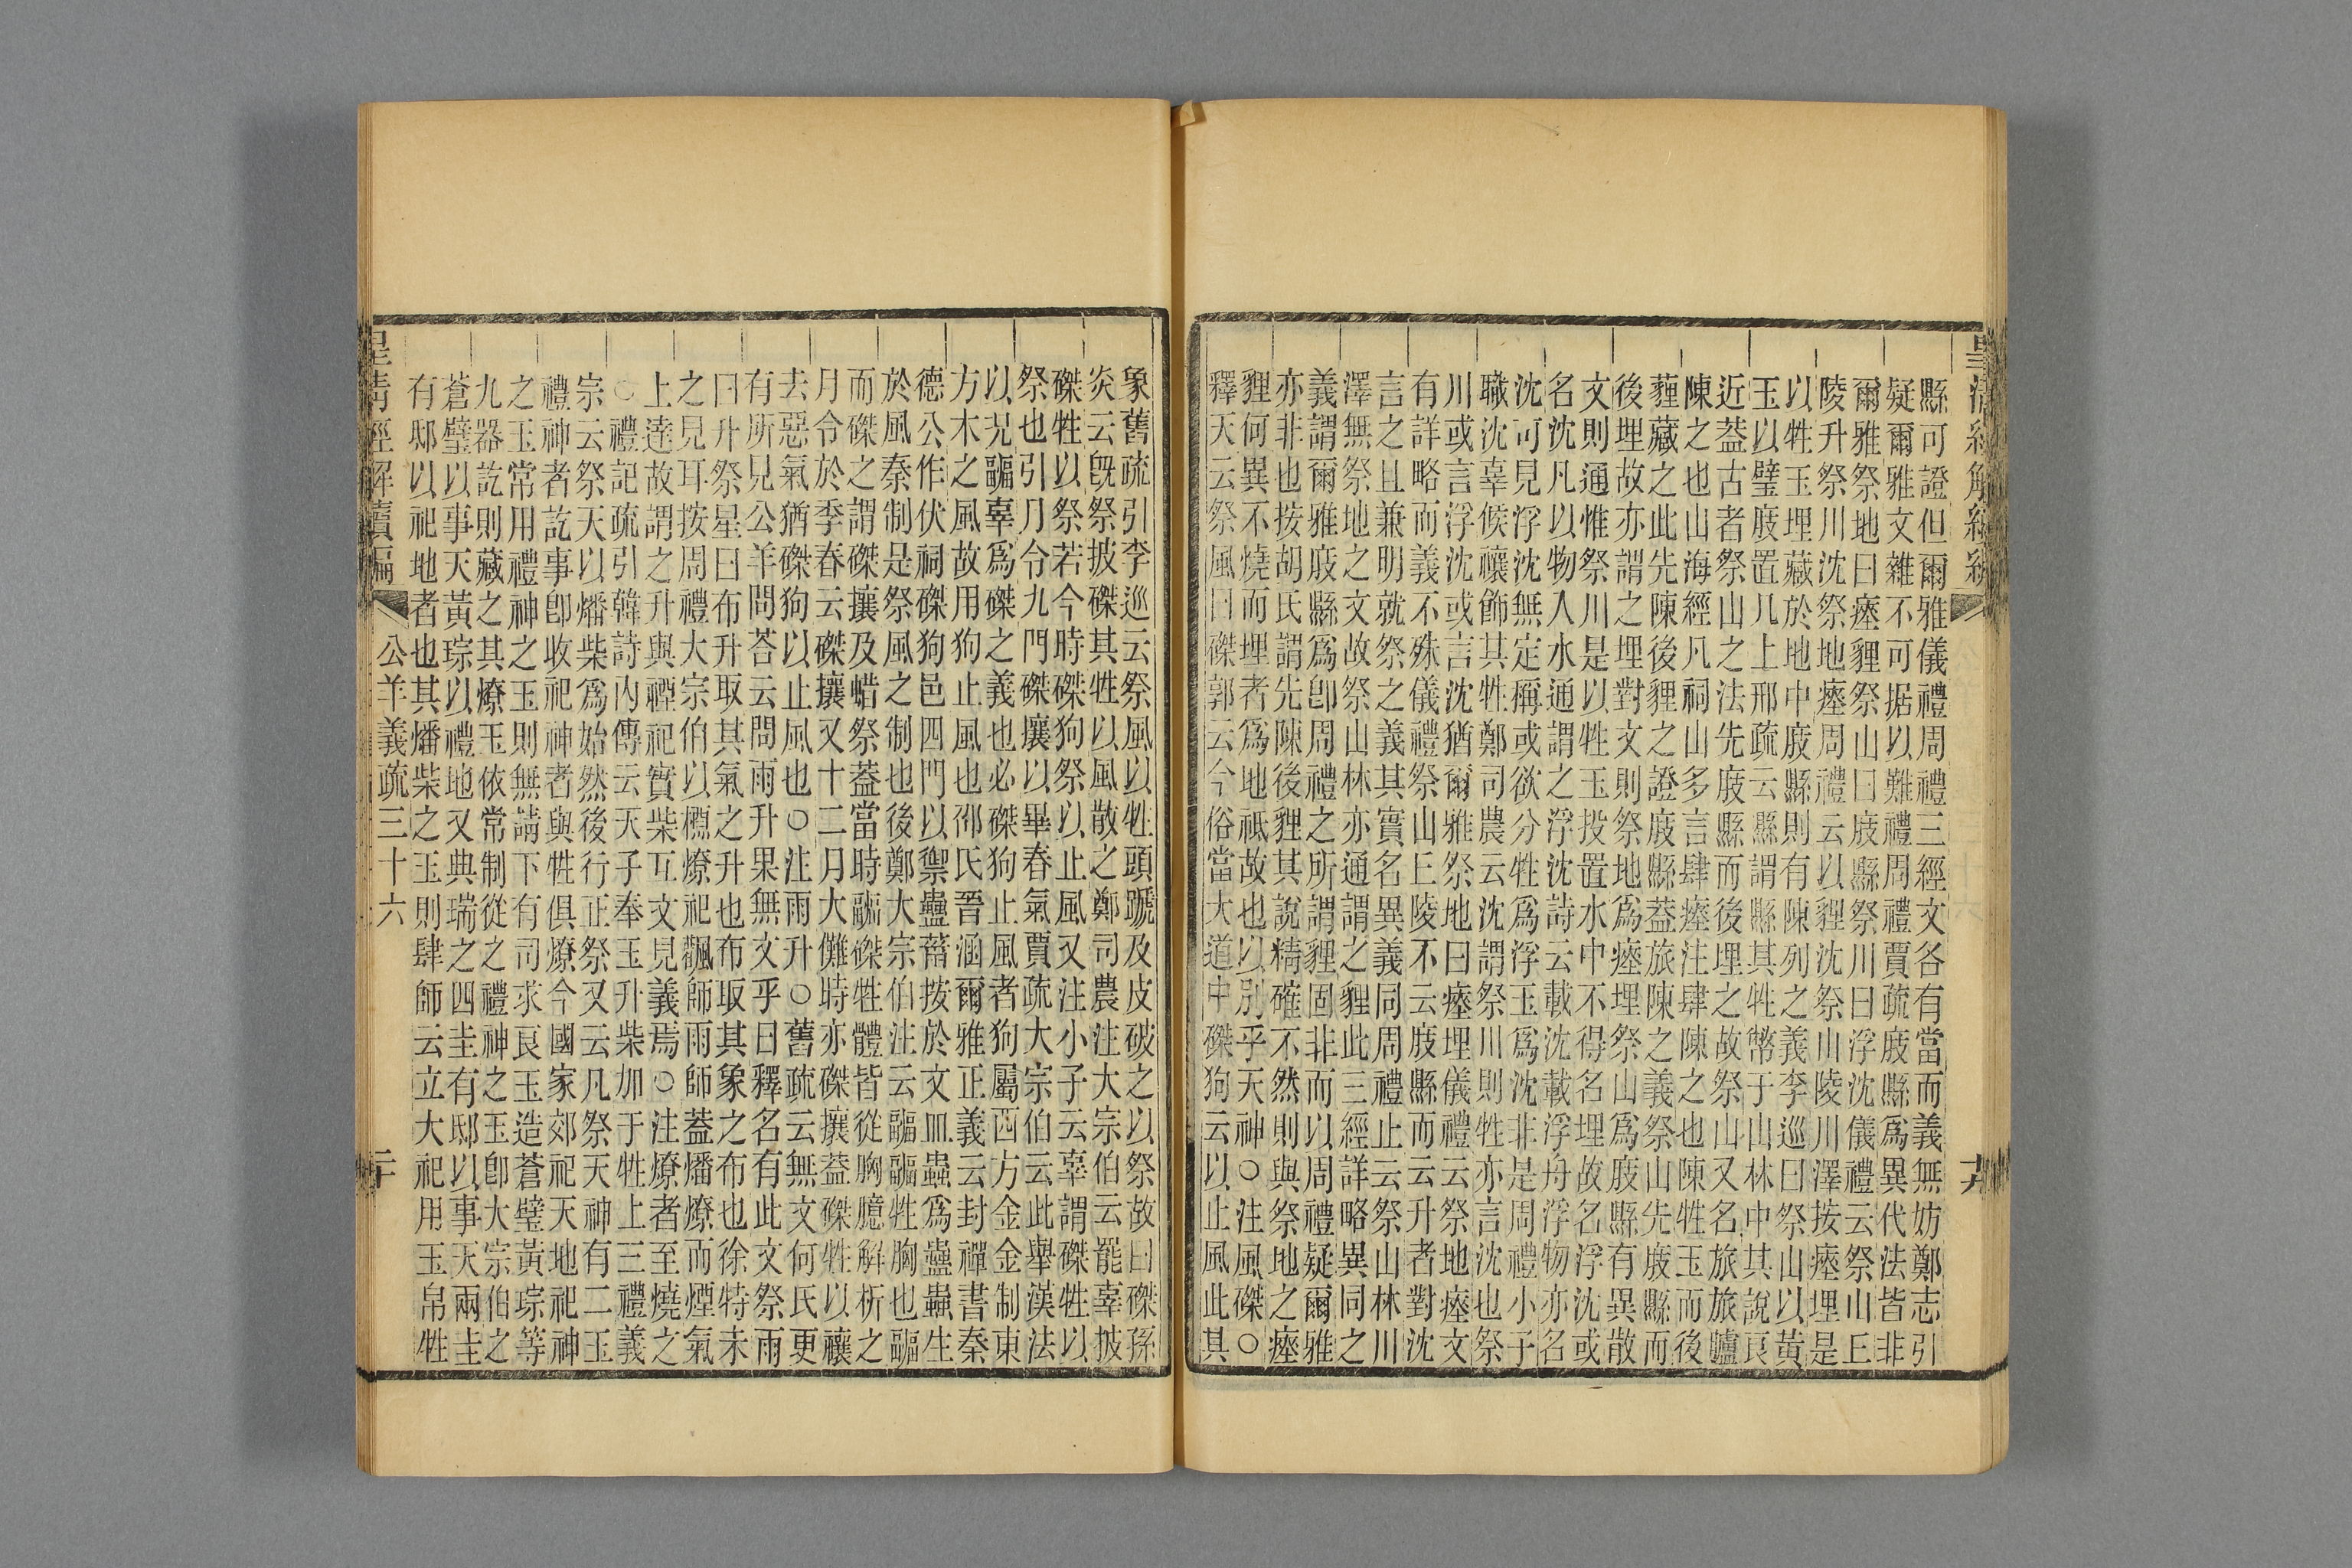 縣可證但爾雅儀禮周禮三經文各有當而義無妨鄭志引
疑爾雅文雜不可据以難禮周禮賈疏庪縣爲異代法皆非
爾雅祭地曰瘞貍祭山曰庪縣祭川曰浮沈儀禮云祭山丘
陵升祭川沈祭地瘞周禮云以貍沈祭山陵川澤按瘞埋是
以牲玉埋藏於地中庪縣則有陳列之義李巡曰祭山以黃
玉以璧庪置几上邢疏云縣謂縣其牲幣于山林中其說哀
近葢古者祭山之法先庪縣而後埋之故祭山又名旅旅臚
陳之也山海經凡祠山多言肆瘞注肆陳之也陳牲玉而後
薶藏之此先陳後貍之證庪縣葢旅陳之義祭山先庪縣而
後埋故亦謂之埋對文則祭地爲瘞埋祭山爲庪縣有異散
文則通惟祭川是以牲玉投置水中不得名埋故名浮沈或
名沈凡以物入水通謂之浮沈詩云載沈載浮舟浮物亦名
沈可見浮沈無定稱或欲分牲爲浮玉爲沈非是周禮小子
職沈辜候禳飾其牲鄭司農云沈謂祭川則牲亦言沈也祭
川或言浮沈或言沈猶爾雅祭地曰瘞埋儀禮云祭地瘞文
有詳略而義不殊儀禮祭山丘陵不云庪縣而云升者對沈
言之且兼明就祭之義其實名異義同周禮止云祭山林川
澤無祭地之文故祭山林亦通謂之貍此三經詳略異同之
義謂爾雅庪縣爲卽周禮之所謂貍固非而以周禮疑爾雅
亦非也按胡氏謂先陳後貍其說精確不然則與祭地之瘞
貍何異不燒而埋者爲地祗故也以別乎天神○注風磔○
釋天云祭風曰磔郭云今俗當大道中磔狗云以止風此其
象舊疏引李巡云祭風以牲頭蹏及皮破之以祭故曰磔孫
炎云旣祭披磔其牲以風散之鄭司農注大宗伯云罷辜披
磔牲以祭若今時磔狗祭以止風又注小子云辜謂磔牲以
祭也引月令九門磔攘以畢春氣賈疏大宗伯云此舉漢法
以況疈辜爲磔之義也必磔狗止風者狗屬西方金金制東
方木之風故用狗止風也邵氏晉涵爾雅正義云封禪書秦
德公作伏祠磔狗邑四門以禦蠱菑按於文皿蟲爲蠱蟲生
於風秦制是祭風之制也後鄭大宗伯注云疈疈牲胸也疈
而磔之謂磔攘及蜡祭葢當時疈磔牲體皆從胸臆解析之
月令於季春云磔攘又十二月大儺時亦磔攘葢磔牲以禳
去惡氣猶磔狗以止風也○注雨升○舊疏云無文何氏更
有所見公羊問荅云問雨升果無文乎曰釋名有此文祭雨
曰升祭星曰布升取其氣之升也布取其象之布也徐特未
之見耳按周禮大宗伯以槱燎祀飌師雨師葢燔燎而煙氣
上達故謂之升與禋祀實柴互文見義焉○注燎者至燒之
○禮記疏引韓詩內傳云天子奉玉升柴加于牲上三禮義
宗云祭天以燔柴爲始然後行正祭又云凡祭天神有二玉
禮神者訖事卽收祀神者與牲俱燎今國家郊祀天地祀神
之玉常用禮神之玉則無請下有司求良玉造蒼璧黃琮等
九器訖則藏之其燎玉依常制從之禮神之玉卽大宗伯之
蒼璧以事天黃琮以禮地又典瑞之四圭有邸以事天兩圭
有邸以祀地者也其燔柴之玉則肆師云立大祀用玉帛牲
皇清經解續編
公羊義疏三十六
二十